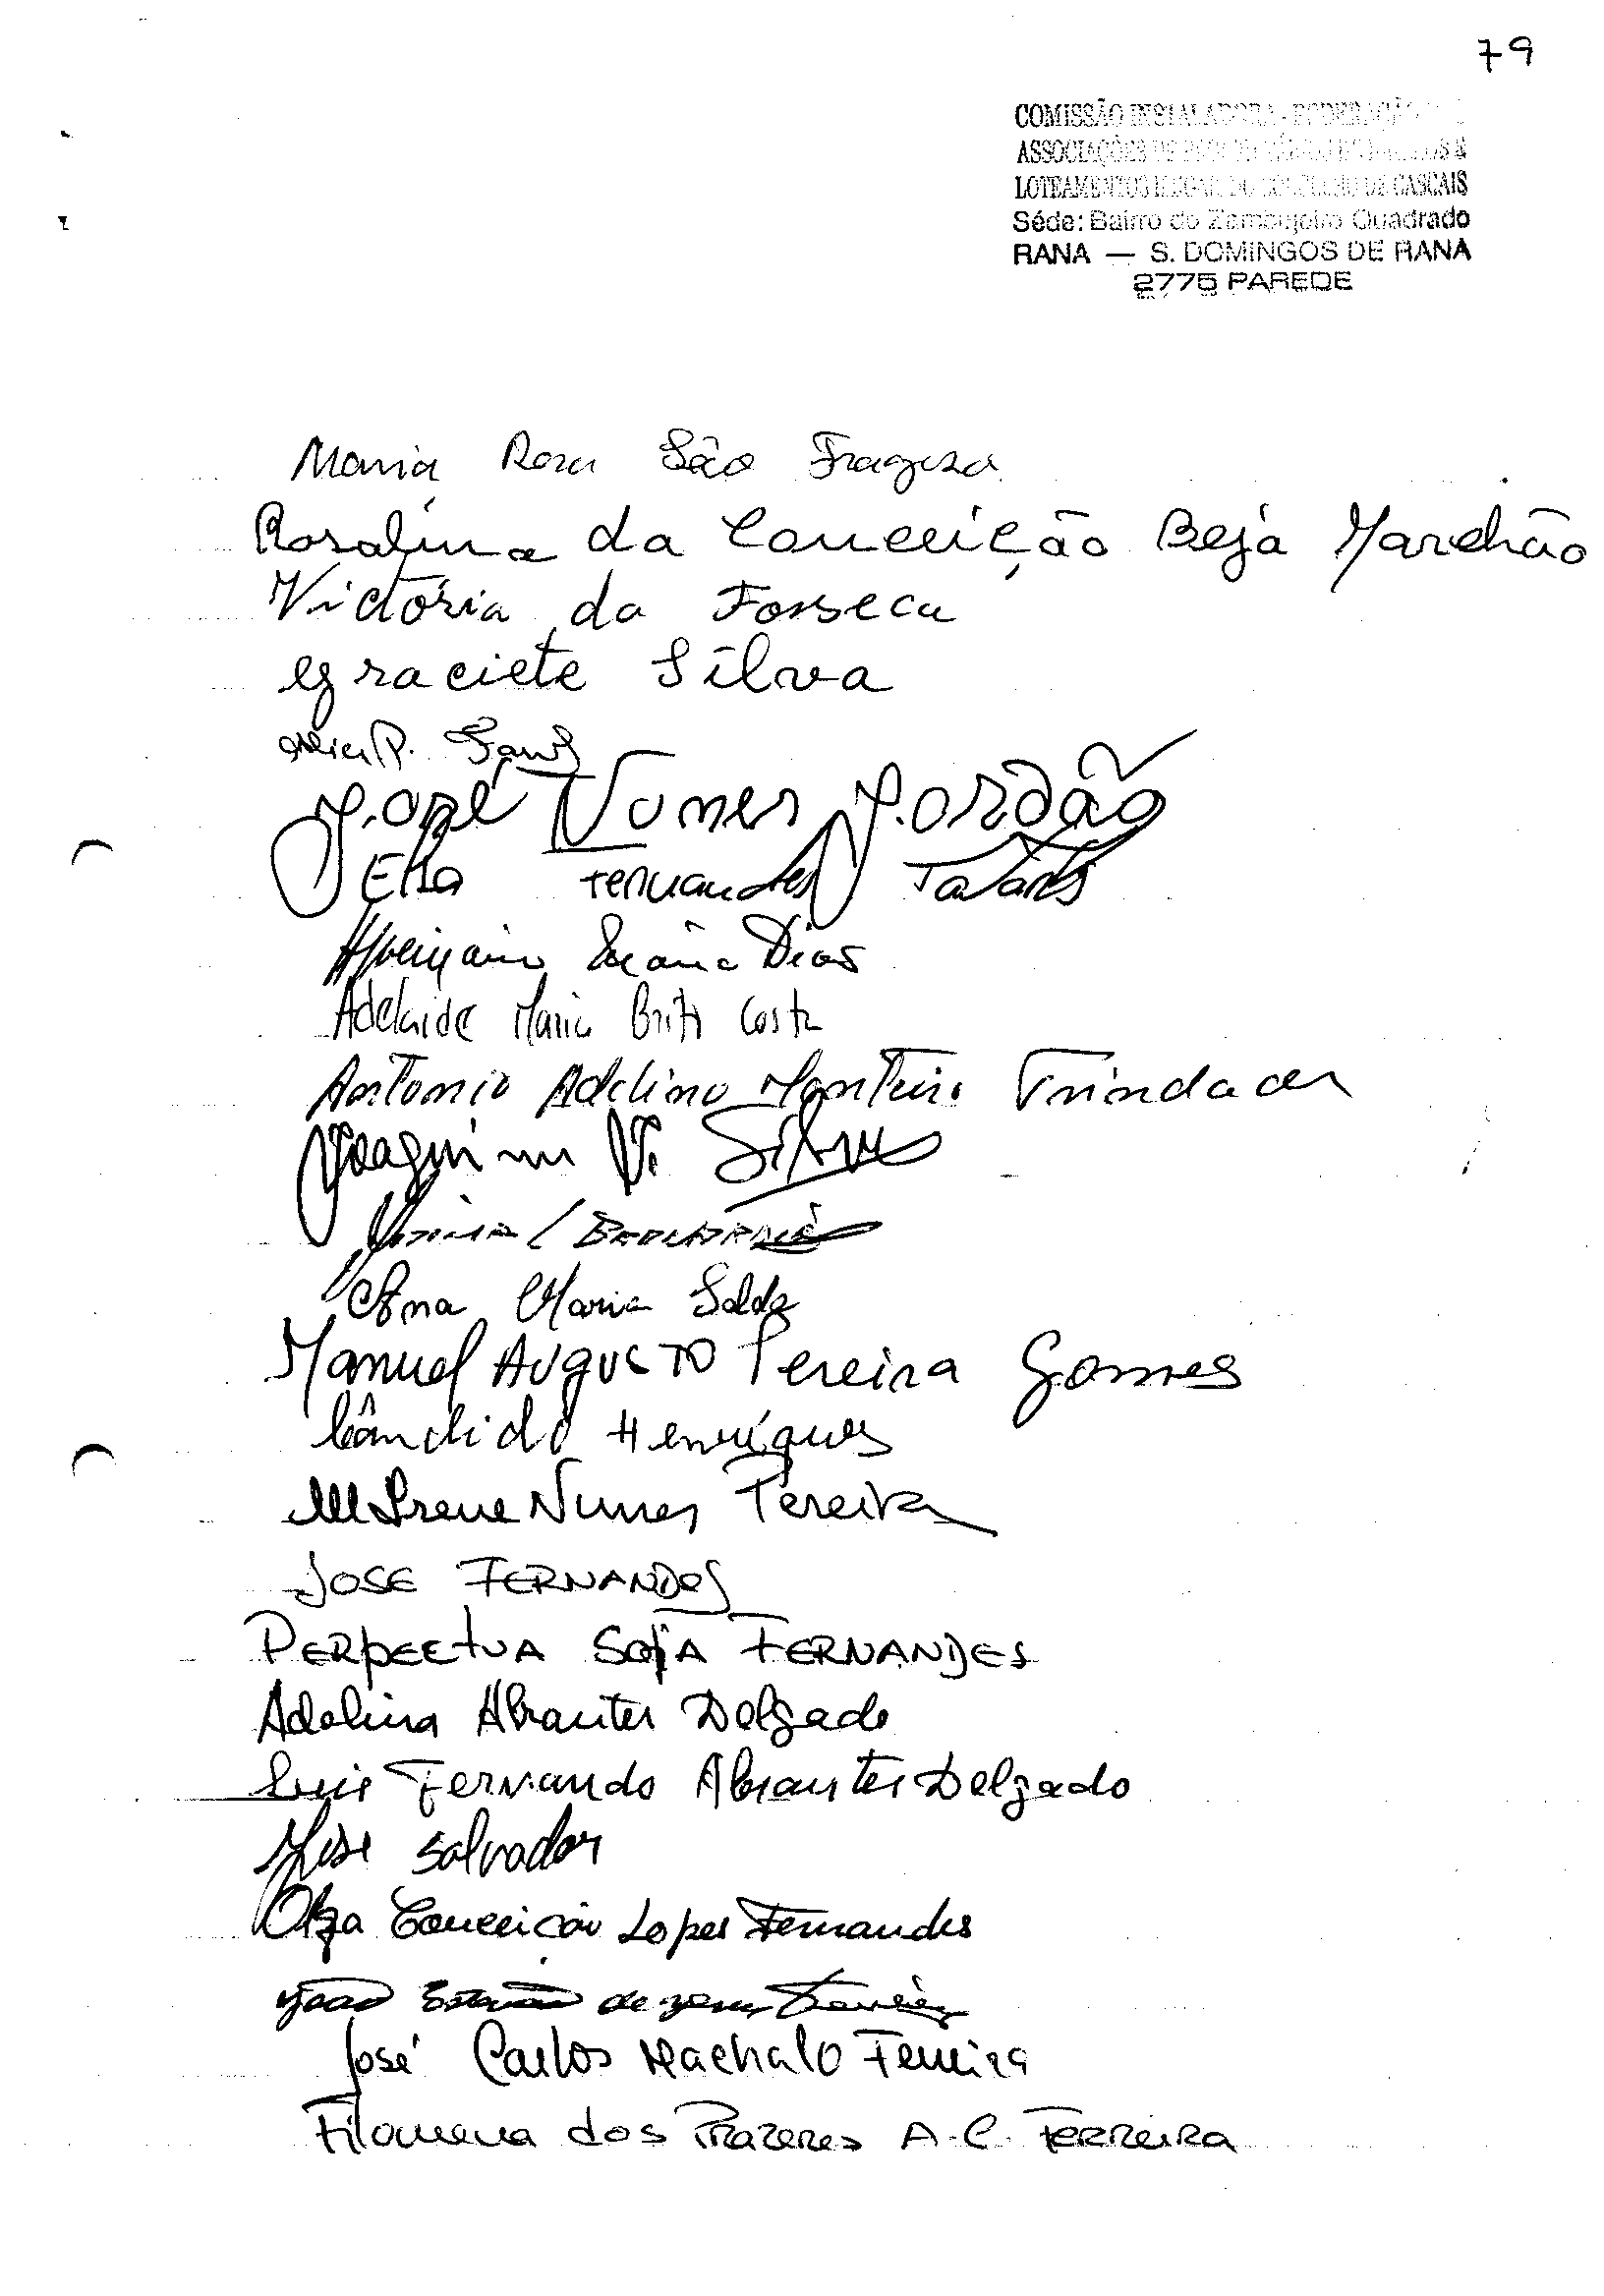 79
COMISSÃO INSTALADORA - FEDERAÇÃO
ASSOCIAÇÕES DE
LOTEAMENTOS ILEGAIS DO CONCELHO DE CASCAIS
Séde: Bairro do Zambujeiro Quadrado
RANA — S. DOMINGOS DE RANA
2775 PAREDE
Maria Rosa São Fragoso
Rosalina da Conceição Beja Marchão
Victória da Fonseca
Graciete Silva
P.
José Nunes Jordão
Elsa Fernandes Tavares
Dias
Adelaide Maria Brito Costa
Antonio Adelino Monteiro Trindade
Joaquim V. Silva
Ana Maria
Manuel Augusto Pereira Gomes
Cândido Henriques
M Irene Nunes Pereira
JOSE FERNANDES
PERPECTUA SOFIA FERNANDES
Adelina Abrantes Delgado
Luis Fernando Abrantes Delgado
José Salvador
Olga Conceição Lopes Fernandes
João de
José Carlos Machado Ferreira
Filomena dos Prazeres A. C. Ferreira